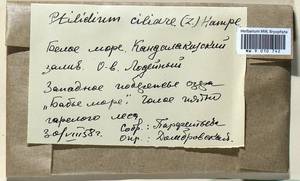 Ptilidium ciliare (L) Hampe
Белое море. Кандалакшский
залив. О-в. Лодейный
Западное побережье озера
"Бабье море". Голое пятно
горелого леса
30/VIII 58 г. Собр.: Парфентьева
Опр.: Домбровская.
Herbarium MW, Bryophyta
MW 9 010 742